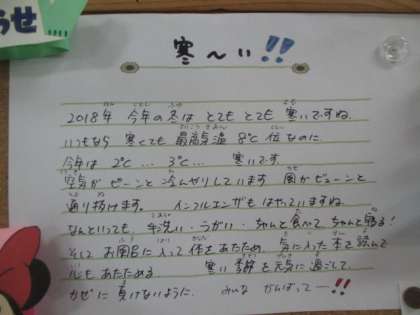 らせ
寒〜い!!
2018年 今年の冬は とても とても 寒いですね
いつもなら 寒くても 最高気温 8℃ 位なのに
今年は 2℃… 3℃… 寒いです
空気が ピーンと 冷んやりしています 風が ビューンと
通り抜けます。 インフルエンザも はやっていますね
なんといっても、手洗い・うがい・ちゃんと食べて ちゃんと寝る!
そして お風呂に入って 体をあたため、気に入った 本を読んで
心も あたためる 寒い 季節を 元気に 過ごして、
かぜに 負けないように、 みんな がんばってー!!